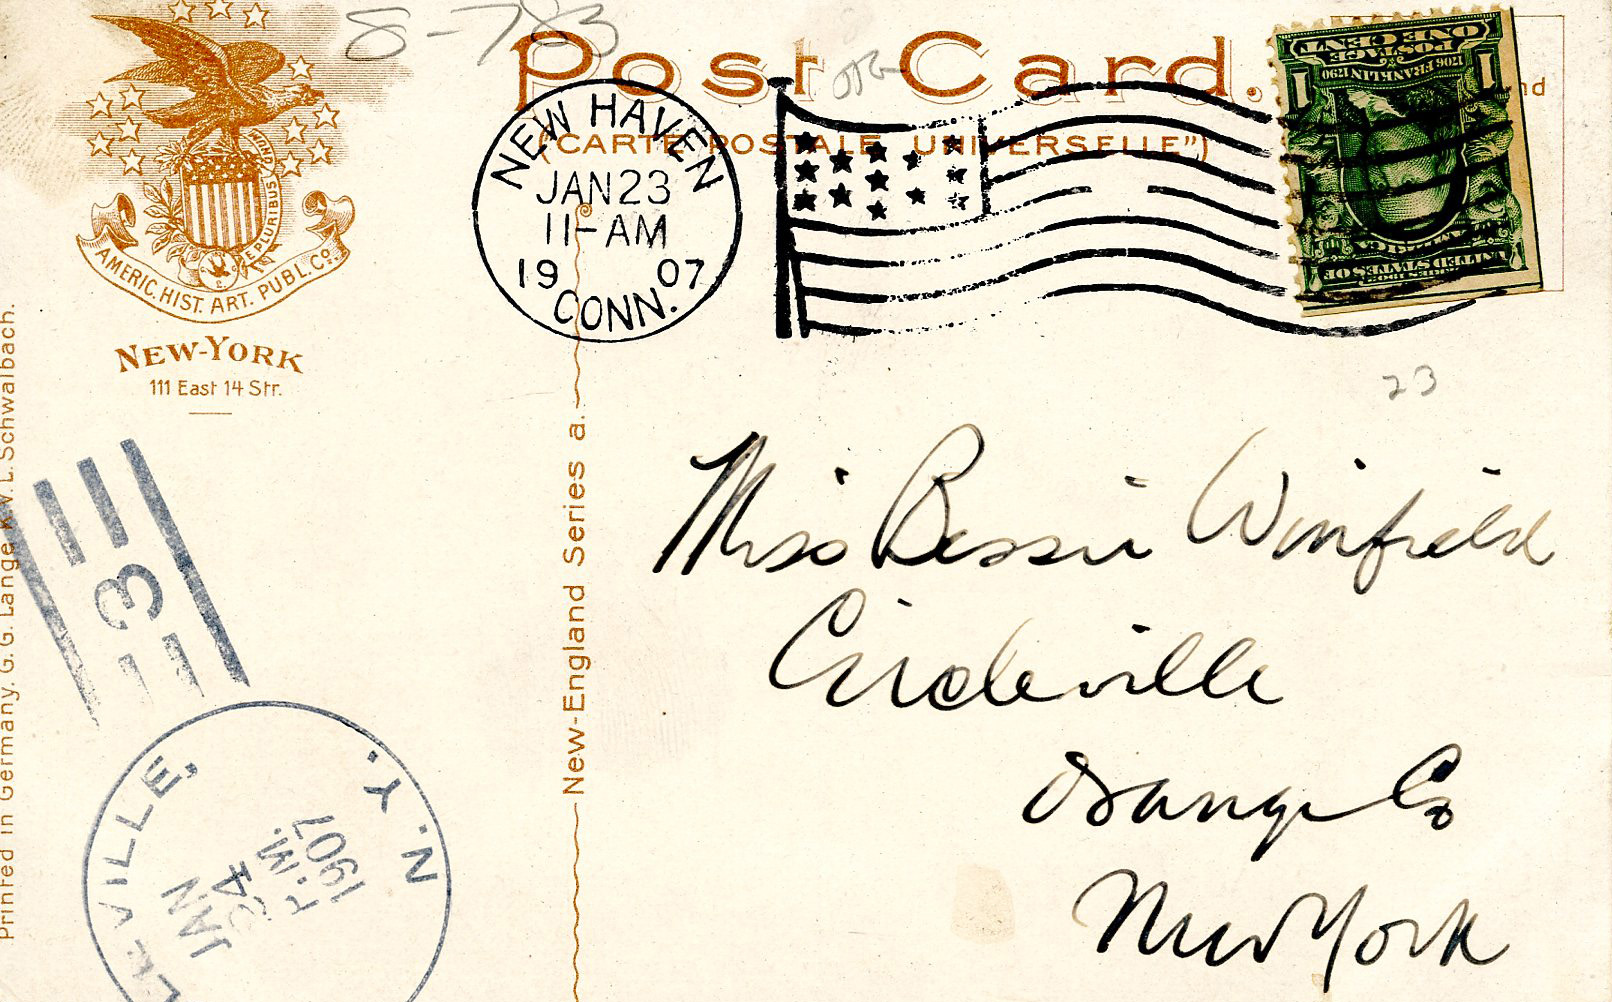 8-783
Post Card.
("CARTE POSTALE UNIVERSELLE")
NEW HAVEN
JAN 23
11-AM
1907
CONN.
ONE CENT
POSTAGE
1706 FRANKLIN 1790
1 1
UNITED STATES OF
AMERICA
E PLURIBUS UNUM
AMERIC. HIST. ART. PUBL. Co.
NEW-YORK
111 East 14 Str.
23
Miss Bessie Winfield
Circleville
Orange Co
New York
New-England Series a.
Printed in Germany. G. G. Lange K. W. L. Schwalbach.
3
LEVILLE, N. Y.
JAN
24
P.M.
1907